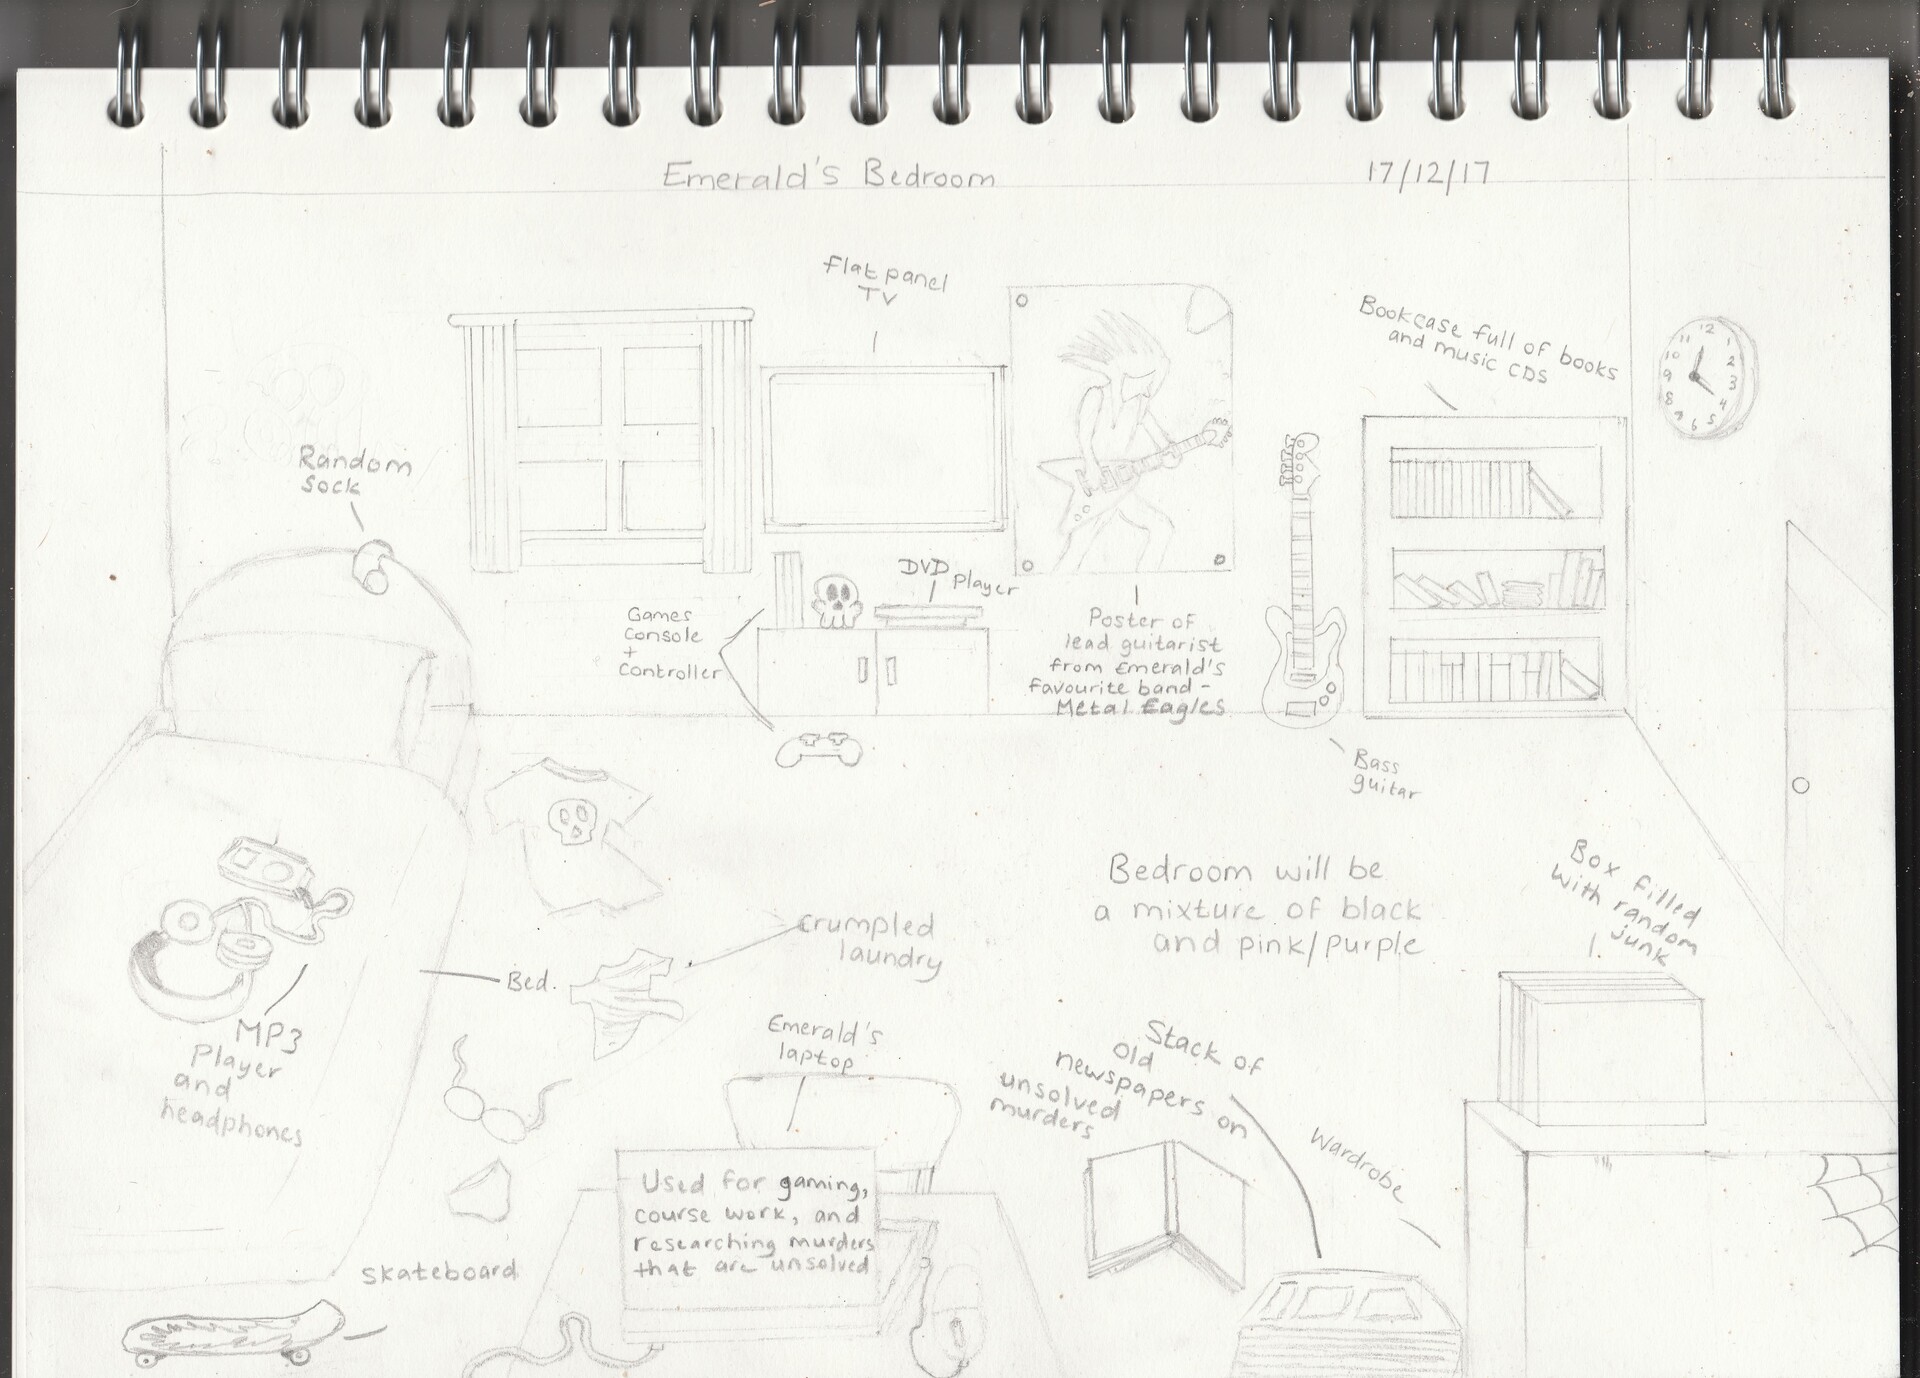 Emerald's Bedroom
17/12/17
Flat panel
TV
Bookcase full of books
and music CDS
12
1
2
3
4
5
6
7
8
9
10
11
Random
Sock
DVD Player
Games
Console
+
Controller
Poster of
lead guitarist
from Emerald's
favourite band -
Metal Eagles
Bass
guitar
Bedroom will be
a mixture of black
and pink/purple
Box filled
with random
junk
crumpled
laundry
Bed.
MP3
Player
and
headphones
Emerald's
laptop
Stack of
old
newspapers on
unsolved
murders
Wardrobe
Used for gaming,
course work, and
researching murders
that are unsolved
Skateboard